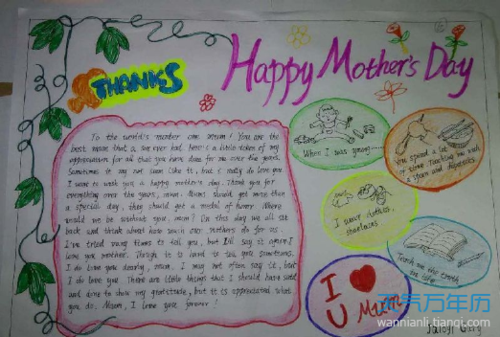 THANKS
Happy Mother's Day
To the world's number one mum! You are the
best mum that a we ever had. here's a little token of my
appreciation for all that you have done for me over the years.
Sometimes it may not seem like it, but I really do love you
I want to wish you a happy mother's day. Thank you for
everything over the years, mum. Mums should get more than
a special day, they should get a medal of honor. Where
would we be without you, mum? On this day we all sit
back and think about how much our mothers do for us.
I've tried many times to tell you, but I'll say it again I
love you mother. Though it is hard to tell you sometimes.
I do love you dearly, mum. I may not often say it, but
I do love you. There are little things that I should have said
and done to show my gratitude, but it is appreciated what
you do. Mum, I love you forever!
When I was young
You spend a lot
of time Teaching me such
a
I wear clothes,
Teach me the truth
to life
I
U Mum
天气万年历
wannianli.tianqi.com